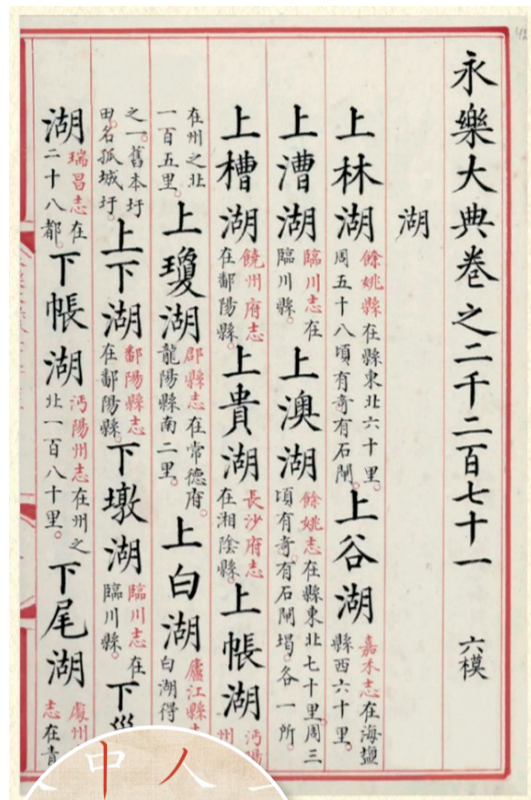 永樂大典卷之二千二百七十一 六模
湖
上林湖 餘姚縣在縣東北六十里。周五十八頃有奇有石閘。上谷湖 嘉禾志在海鹽縣西六十里。
上漕湖 臨川志在臨川縣。上澳湖 餘姚志在縣東北七十里。周三頃有奇。有石閘堨。各一所。
上槽湖 饒州府志在鄱陽縣。上貴湖 長沙府志在湘陰縣。上帳湖 沔 州
在州之北一百五里。上瓊湖 郡縣志在常德府。龍陽縣南二里。上白湖 廬江縣 白湖得
之一。舊本圩田。名孤城圩。上下湖 鄱陽縣志在鄱陽縣。下墩湖 臨川志在臨川縣。下
湖 瑞昌志在二十八都。下帳湖 沔陽州志在州之北一百八十里。下尾湖 處州志在青
中人